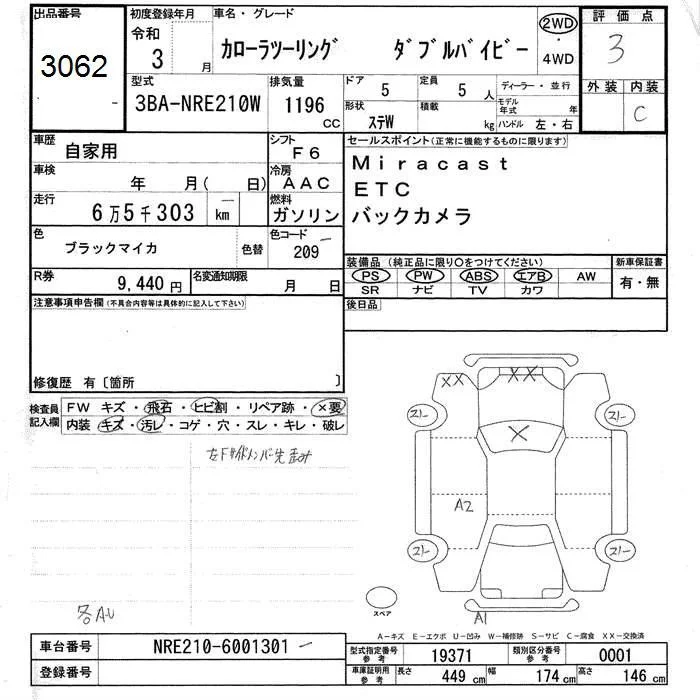 出品番号
3062
初度登録年月
令和
3 月
車名・グレード
カローラツーリング ダブルバイビー
2WD
・
4WD
評価点
3
外装 内装
C
型式
3BA-NRE210W
排気量
1196
CC
ドア
5
定員
5 人
形状
ステW
積載
kg
ディーラー・並行
モデル年式 年
ハンドル 左・右
車歴
自家用
シフト
F6
車検
年 月( 日)
冷房
AAC
走行
6万5千303 km
燃料
ガソリン
色
ブラックマイカ
色替
色コード
209
R券
9,440 円
名変通知期限
月 日
セールスポイント(正常に機能するものに限ります)
Miracast
ETC
バックカメラ
装備品 (純正品に限り○をつけてください)
PS PW ABS エアB AW
SR ナビ TV カワ
新車保証書
有・無
後日品
注意事項申告欄(不具合内容等は具体的に記入して下さい)
修復歴 有〔箇所 〕
検査員記入欄
FW キズ・飛石・ヒビ割・リペア跡・×要
内装 キズ・汚レ・コゲ・穴・スレ・キレ・破レ
左Fサイドメンバー先歪み
各AU
XX
XX
X
A2
A1
スペア
A-キズ E-エクボ U-凹み W-補修跡 S-サビ C-腐食 XX-交換済
車台番号
NRE210-6001301
登録番号
型式指定番号 参考
19371
類別区分番号 参考
0001
車庫証明用 参考
長さ 449 cm
幅 174 cm
高さ 146 cm